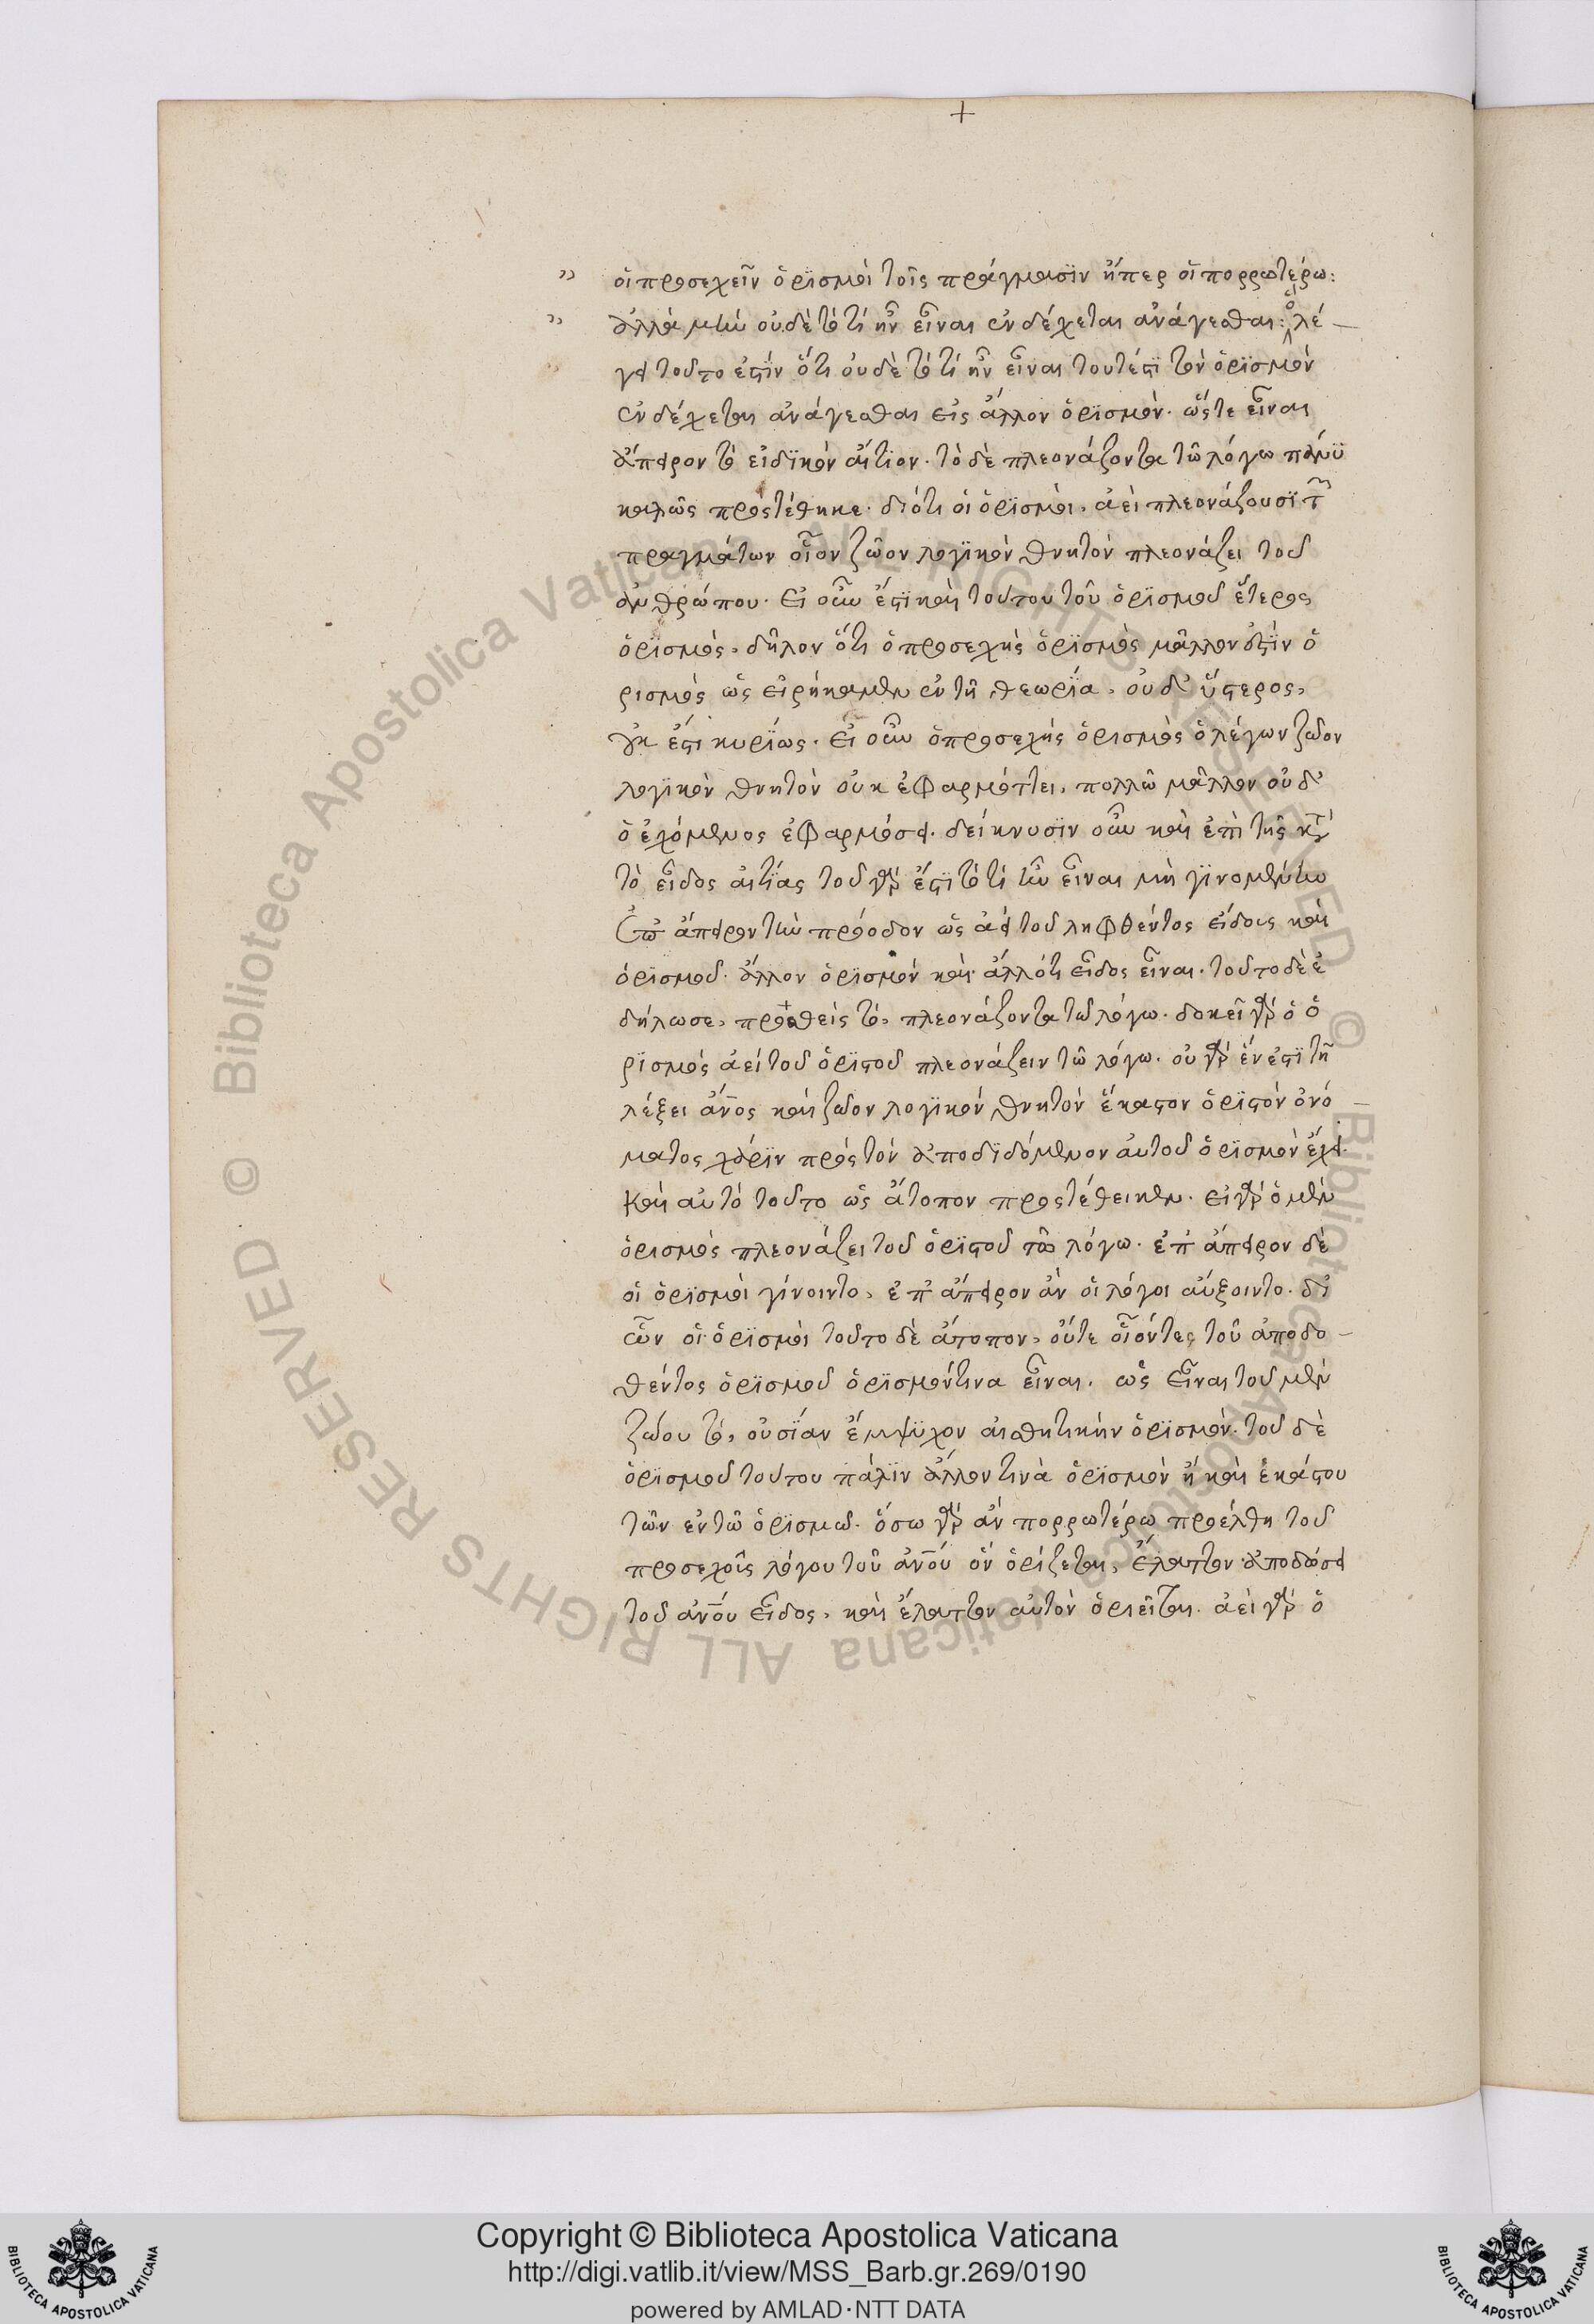 +
οἱ προσεχεῖν ὁρϊσμοὶ τοῖς πράγμασϊν ἤπερ οἱ πορρωτέρω:
ἀλλὰ μὴν οὐδὲ τὸ τί ἦν εἶναι ἐνδέχεται ἀνάγεσθαι: ὃ λέ-
γει τοῦτο ἐστϊν ὅτι οὐδὲ τὸ τί ἦν εἶναι τουτέστϊ τὸν ὁρϊσμὸν
ἐνδέχεται ἀνάγεσθαι εἰς ἄλλον ὁρϊσμὸν. ὥστε εἶναι
ἄπειρον τὸ εἰδϊκὸν αἴτϊον. τὸ δὲ πλεονάζοντα τῶ λόγω πάνϋ
καλῶς προστέθηκε. διότι οἱ ὁρϊσμοὶ, ἀεὶ πλεονάζουσϊ τῶν
πραγμάτων οἷον ζῶον λογϊκὸν θνητὸν πλεονάζει τοῦ
ἀνθρώπου. εἰ οὖν ἔστϊ καὶ τούτου τοῦ ὁρϊσμοῦ ἕτερος
ὁρϊσμὸς, δῆλον ὅτι ὁ προσεχὴς ὁρϊσμὸς μᾶλλον ἐστϊν ὁ
ρισμὸς ὡς εἰρήκαμεν ἐν τῆ θεωρϊα, οὐ δ' ὕστερος,
οὐκ ἔστι κυρϊως. εἰ οὖν ὁ προσεχὴς ὁρισμὸς ὁ λέγων ζῶον
λογϊκὸν θνητὸν οὐκ ἐφαρμόττει, πολλῶ μᾶλλον οὐ δ'
ὁ ἐχόμενος ἐφαρμόσει. δείκνυσϊν οὖν καὶ ἐπὶ τῆς κατὰ
τὸ εἶδος αἰτϊας τοῦ γὰρ ἔστϊ τὸ τί ἦν εἶναι μὴ γϊνομένην
ἐπ' ἄπειρον τὴν πρόοδον ὡς ἀεὶ τοῦ ληφθέντος εἴδους καὶ
ὁρϊσμοῦ. ἄλλον ὁρϊσμὸν καὶ ἄλλό τι εἶδος εἶναι. τοῦτο δὲ ἐ
δήλωσε, προσθεὶς τὸ, πλεονάζοντα τῶ λόγω. δοκεῖ γὰρ ὁ ὁ
ρϊσμὸς ἀεὶ τοῦ ὁρϊστοῦ πλεονάζειν τῶ λόγω. οὐ γὰρ ἕν ἐστϊ τῆ
λέξει ἄνος καὶ ζῶον λογϊκὸν θνητὸν ἕκαστον ὁρϊστὸν ὀνό-
ματος χάρϊν πρὸς τὸν ἀποδϊδόμενον αὐτοῦ ὁρϊσμὸν ἔχει.
καὶ αὐτὸ τοῦτο ὡς ἄτοπον προστέθεικεν. εἰ γὰρ ὁ μὲν
ὁρισμὸς πλεονάζει τοῦ ὁρϊστοῦ τῶ λόγω. ἐπ' ἄπειρον δὲ
οἱ ὁρϊσμοὶ γίνοιντο, ἐπ' ἄπειρον ἂν οἱ λόγοι αὔξοιντο. δι'
ὧν οἱ ὁρϊσμοὶ τοῦτο δὲ ἄτοπον, οὔτε οἷόντες τοῦ ἀποδο-
θέντος ὁρϊσμοῦ ὁρϊσμόν τινα εἶναι. ὡς εἶναι τοῦ μὲν
ζώου τὸ, οὐσϊαν ἔμψϋχον αἰσθητικὴν ὁρϊσμὸν. τοῦ δὲ
ὁρϊσμοῦ τούτου πάλϊν ἄλλον τινὰ ὁρϊσμὸν ἢ καὶ ἑκάστου
τῶν ἐν τῶ ὁρϊσμῶ. ὅσω γὰρ ἂν πορρωτέρω προέλθη τοῦ
προσεχοῖς λόγου τοῦ ἀνου ὃν ὁρίζεται, ἔλαττον ἀποδώσει
τοῦ ἀνου εἶδος, καὶ ἔλαττον αὐτὸν ὁριεῖται. ἀεὶ γὰρ ὁ
Copyright © Biblioteca Apostolica Vaticana
http://digi.vatlib.it/view/MSS_Barb.gr.269/0190
powered by AMLAD·NTT DATA